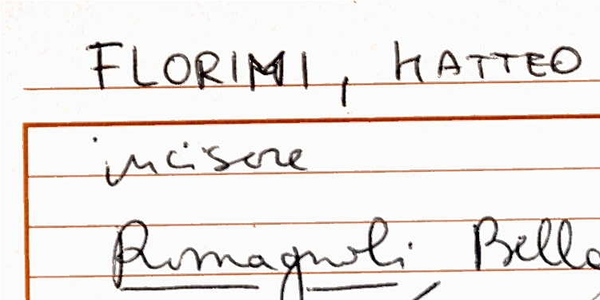 FLORIMI, MATTEO
incisore
Romagnoli Bella